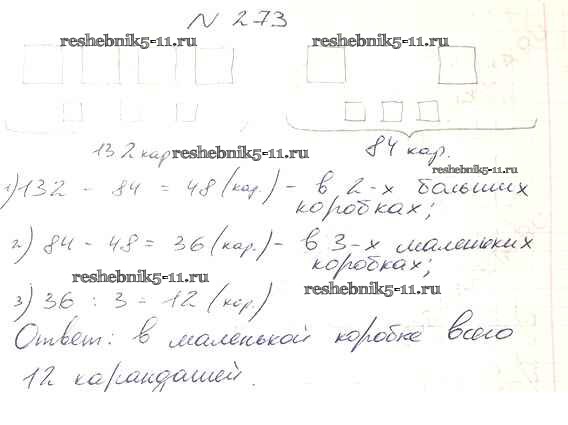 N 273
reshebnik5-11.ru reshebnik5-11.ru
132 кар reshebnik5-11.ru 84 кар.
reshebnik5-11.ru
1) 132 - 84 = 48 (кар.) - в 2-х больших
коробках;
2) 84 - 48 = 36 (кар.) - в 3-х маленьких
коробках;
reshebnik5-11.ru reshebnik5-11.ru
3) 36 : 3 = 12 (кар.)
Ответ: в маленькой коробке всего
12 карандашей.